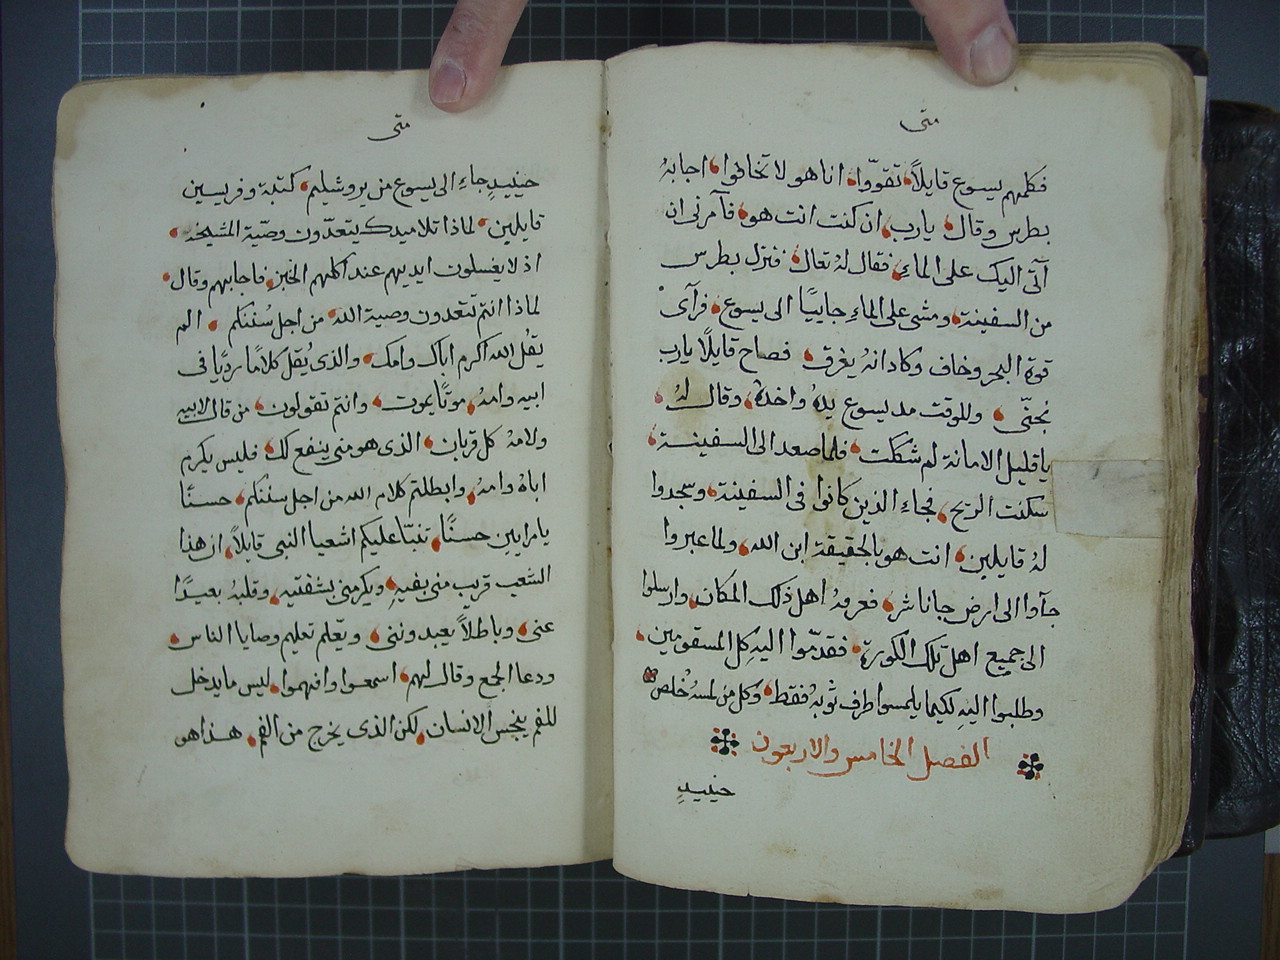 متى
فكلمهم يسوع قايلاً تقووّا انا هو لا تخافوا اجابهُ
بطرس وقال يارب ان كنت انت هو فآمرنى ان
آتى اليك على الماءِ فقال لهُ تعال فنزل بطرس
من السفينة ومشى على الماءِ جاييًا الى يسوع فرآى
قوة البحر وخاف وكاد انهُ يغرق فصاح قايلًا يارب
نجنّى وللوقت مد يسوع يدهُ واخذهُ وقال لهُ
يا قليل الامانة لم شككت فلما صعد الى السفينة
سكنت الريح فجاءِ الذين كانوا فى السفينة وسجدوا
لهُ قايلين انت هو بالحقيقة ابن الله ولما عبروا
جآوا الى ارض جاناشر فعرفهُ اهل ذلك المكان وارسلوا
الى جميع اهل تلك الكورة فقدّموا اليهِ كل المسقومين
وطلبوا اليهِ لكيما يلمسوا طرف ثوبهُ فقط وكل من لمسهُ خلص
الفصل الخامس والاربعون
حينيدٍ
متى
حينيدٍ جاءِ الى يسوع من يروشليم كتبة وفريسين
قايلين لماذا تلاميدك يتعدّون وصيّة المشيخه
اذ لا يغسلون ايديهم عند اكلهم الخبز فاجابهم وقال
لماذا انتم تتعدون وصية الله من اجل سُننكم الم
يقُل الله اكرم اباك وامك والذى يُقل كلامًا رديًا فى
ابيه وامهُ موتًا يموت وانتم تقولون من قال لابيه
ولامهُ كل قربان الذى هو منى ينفع لك فليس يكرم
اباهُ وامهُ وابطلتم كلام الله من اجل سننكم حسنًا
يا مرايين حسنًا تنبّا عليكم اشعيا النبى قايلاً ان هذا
الشعب قريب منى بفيهِ ويكرمنى بشفتيه وقلبهُ بعيدًا
عنى وباطلاً يعبدوننى ويعّلم تعليم وصايا الناس
ودعا الجمع وقال لهم اسمعوا وافهموا ليس ما يدخل
للفم ينجس الانسان لكن الذى يخرج من الفم هذا هو